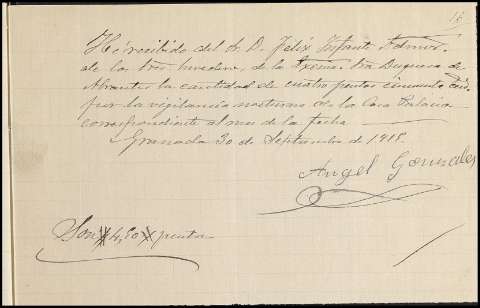 16
He recibido del Sr. D. Felix Infante Admor.
de la de la Excma. Sra Duquesa de
Abrantes la cantidad de cuatro pesetas cincuenta cts
por la vigilancia nocturna de la Casa Palacio
correspondiente al mes de la fecha
Granada 30 de Septiembre de 1918.
Angel Gonzales
Son 4,50 pesetas